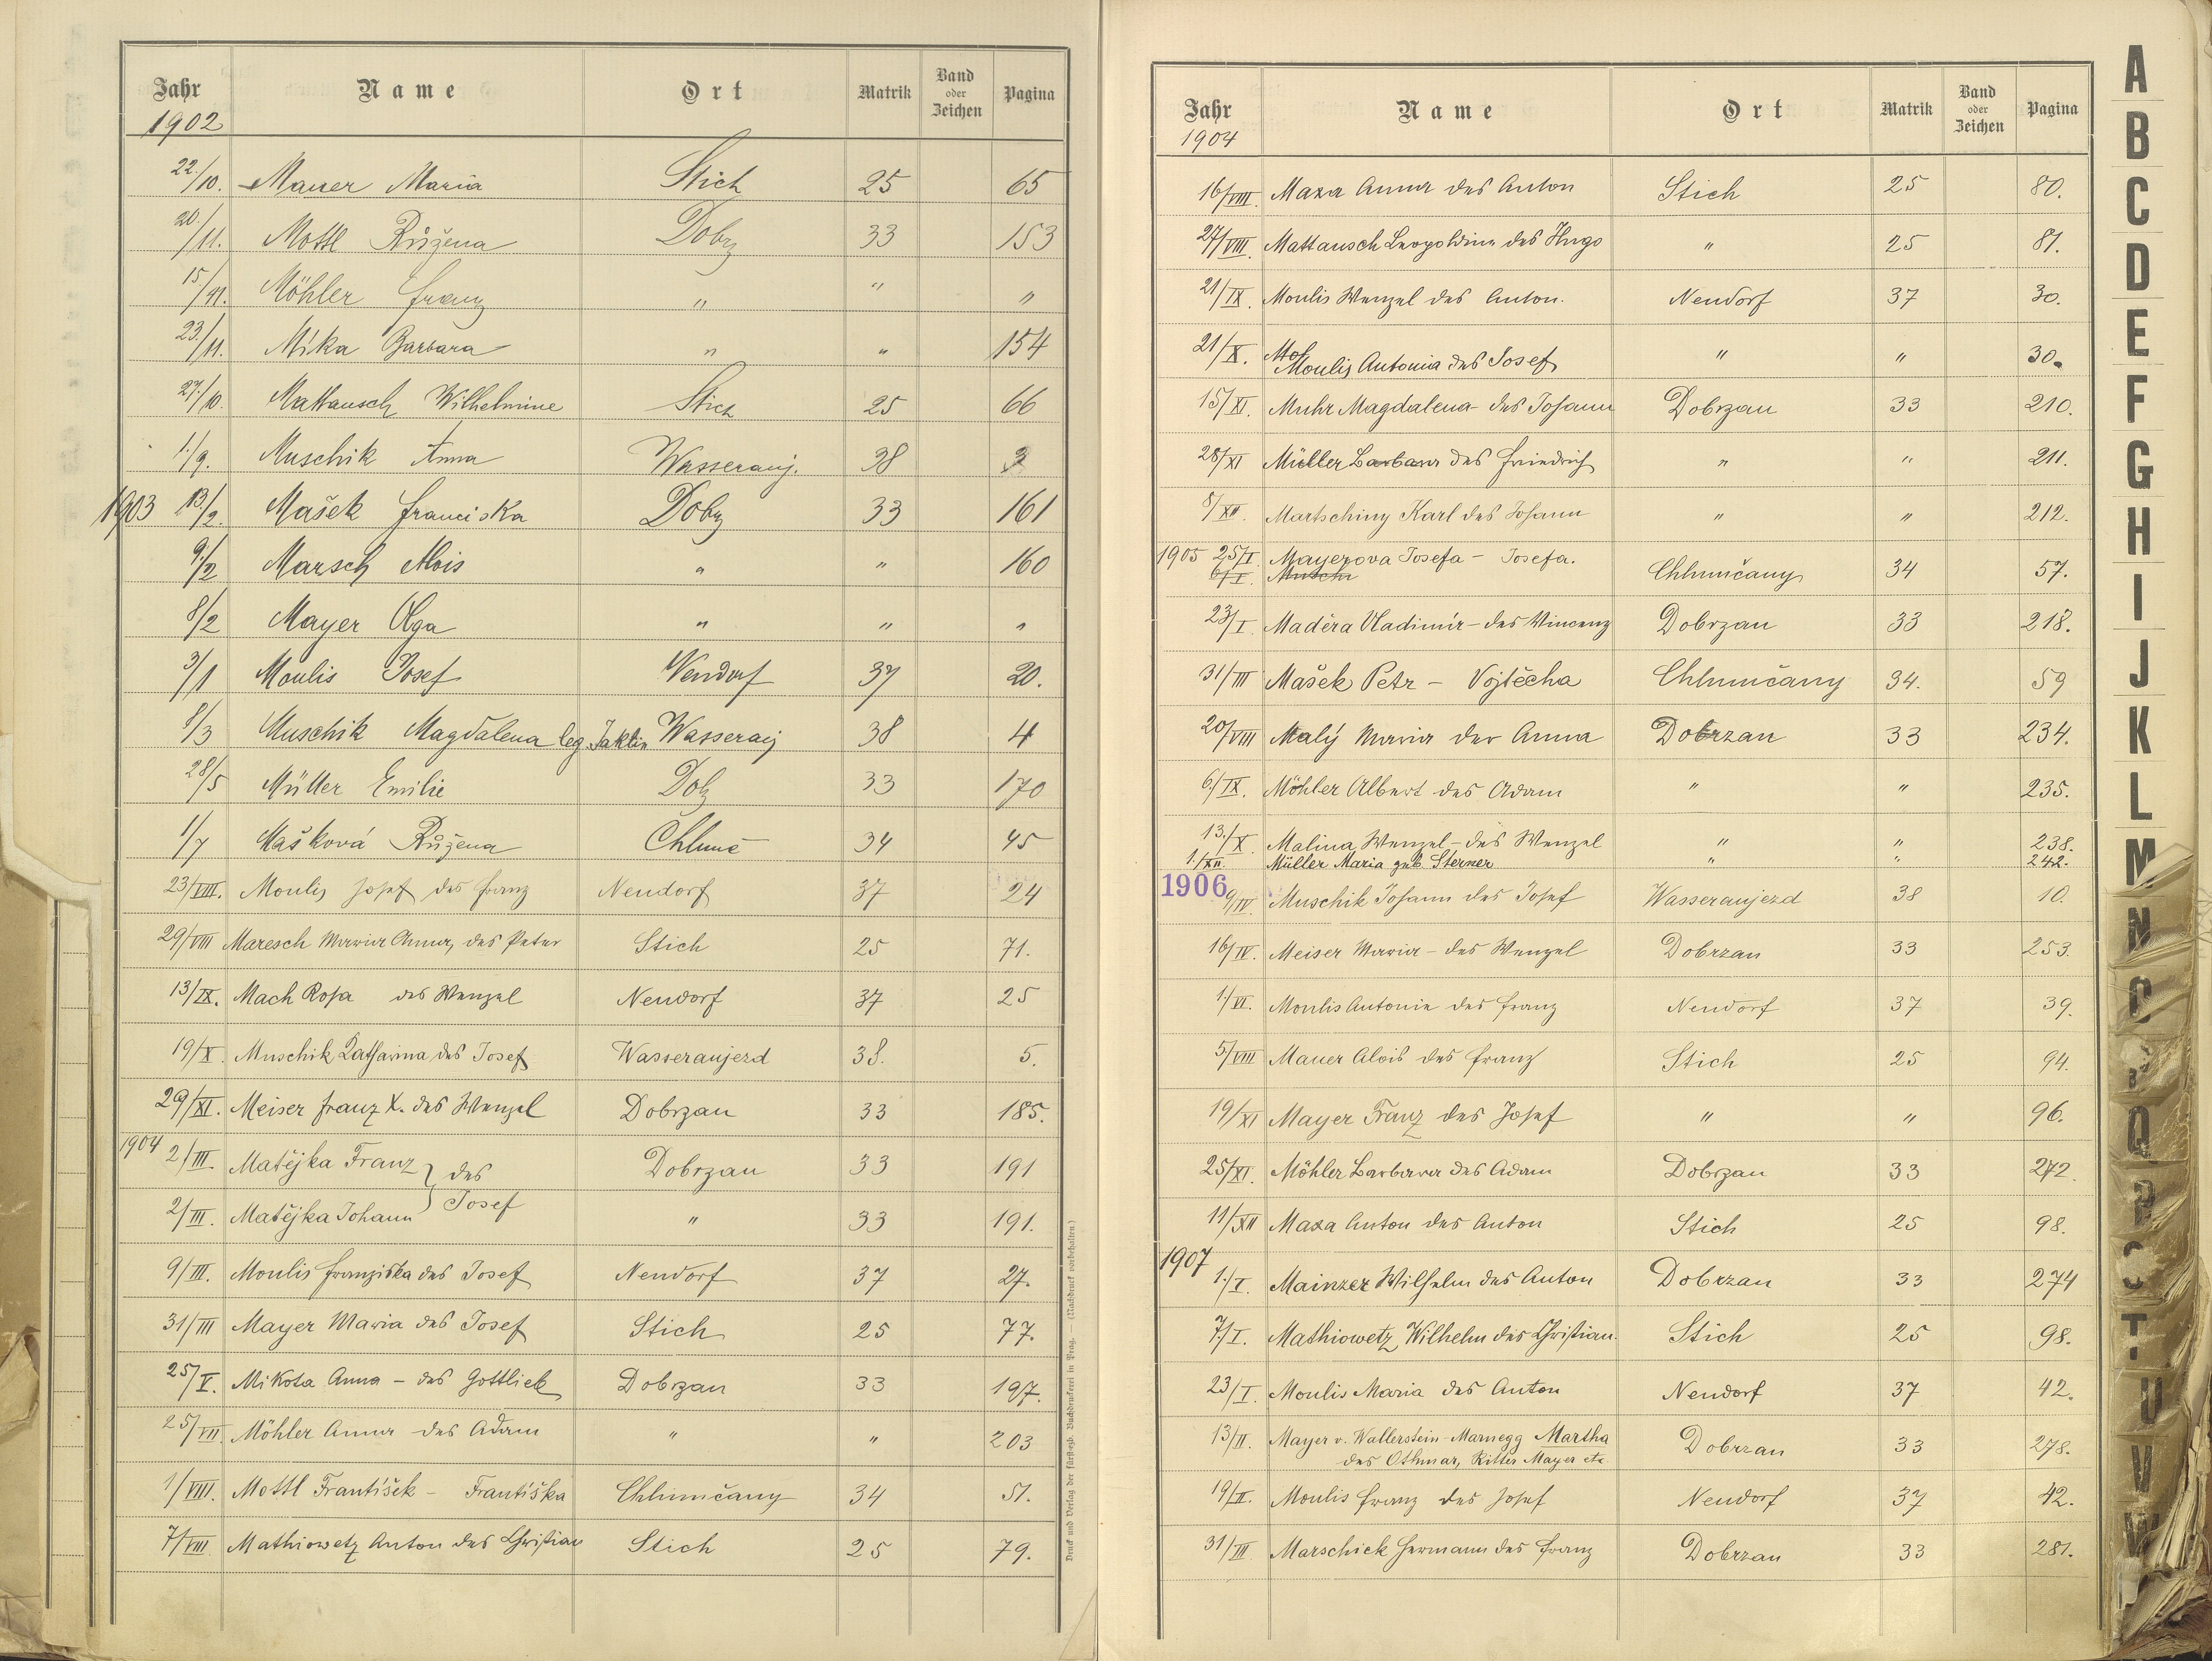 Jahr Name Ort Matrik Band oder Zeichen Pagina
1902
22./10. Mauer Maria Stich 25 65
20/11. Mottl Růžena Dobrz 33 153
15/11. Möhler Franz " " "
23./11. Míka Barbara " " 154
27./10. Mattausch Wilhelmine Stich 25 66
1./9. Muschik Anna Wasserauj. 38
1903 13/2. Mašek Franciska Dobrz 33 161
9./2 Marsch Alois " " 160
8/2 Mayer Olga " " "
3/1 Moulis Josef Nendorf 37 20.
8/3 Muschik Magdalena leg. Jaklin Wasserauj 38 4
28/5 Müller Emilie Dobz 33 170
1/7 Mašková Růžena Chlumč 34 45
23/VIII. Moulis Josef des Franz Nendorf 37 24
29/VIII Maresch Maria Anna, des Peter Stich 25 71.
13/IX. Mach Rosa des Wenzel Nendorf 37 25
19/X. Muschik Katharina des Josef Wasseraujezd 38. 5.
29/XI. Meiser Franz X. des Wenzel Dobrzan 33 185.
1904 2/III. Matějka Franz } des Dobrzan 33 191
2/III. Matějka Johann } Josef " 33 191.
9/III. Moulis Franziska des Josef Nendorf 37 27.
31/III Mayer Maria des Josef Stich 25 77.
25/V. Mikota Anna - des Gottlieb Dobrzan 33 197.
25/VII. Möhler Anna des Adam " " 203
1/VIII. Mottl František - Františka Chlumčany 34 51.
7/VIII Mathiowetz Anton des Christian Stich 25 79.
Druck und Verlag der fürsterzb. Buchdruckerei in Prag. — (Nachdruck vorbehalten.)
Jahr Name Ort Matrik Band oder Zeichen Pagina
1904
16/VIII. Maxa Anna des Anton Stich 25 80.
27/VIII. Mattausch Leopoldine des Hugo " 25 81.
21/IX. Moulis Wenzel des Anton. Nendorf 37 30.
21/X. Mol
Moulis Antonia des Josef " " 30.
15/XI. Muhr Magdalena - des Johann Dobrzan 33 210.
28/XI Müller Barbara des Friedrich " " 211.
8/XII. Martschiny Karl des Johann " " 212.
1905 25/I. Mayerova Josefa - Josefa. Chlumčany 34 57.
6/I.
23/I. Maděra Vladimír - des Vincenz Dobrzan 33 218.
31/III Mašek Petr - Vojtěcha Chlumčany 34. 59
20/VIII Malý Maria der Anna Dobrzan 33 234.
6./IX. Möhler Albert des Adam " " 235.
13./X. Malina Wenzel - des Wenzel " " 238.
1./XII. Müller Maria geb. Sterner " " 242.
1906
9/IV. Muschik Johann des Josef Wasseraujezd 38 10.
16/IV. Meiser Maria - des Wenzel Dobrzan 33 253.
1./VI. Moulis Antonie des Franz Nendorf 37 39.
5/VIII Mauer Alois des Franz Stich 25 94.
19/XI Mayer Franz des Josef " " 96.
25/XI. Möhler Barbara des Adam Dobrzan 33 272.
11/XII Maxa Anton des Anton Stich 25 98.
1907
1./I. Mainzer Wilhelm des Anton Dobrzan 33 274
7./I. Mathiowetz Wilhelm des Christian. Stich 25 98.
23/I. Moulis Maria des Anton Nendorf 37 42.
13/II. Mayer v. Wallerstein-Marnegg Martha Dobrzan 33 278.
des Othmar, Ritter Mayer etc.
19/II. Moulis Franz des Josef Nendorf 37 42.
31/III Marschick Hermann des Franz Dobrzan 33 281.
A
B
C
D
E
F
G
H
I
J
K
L
M
N
O
P
Q
R
S
T
U
V
W